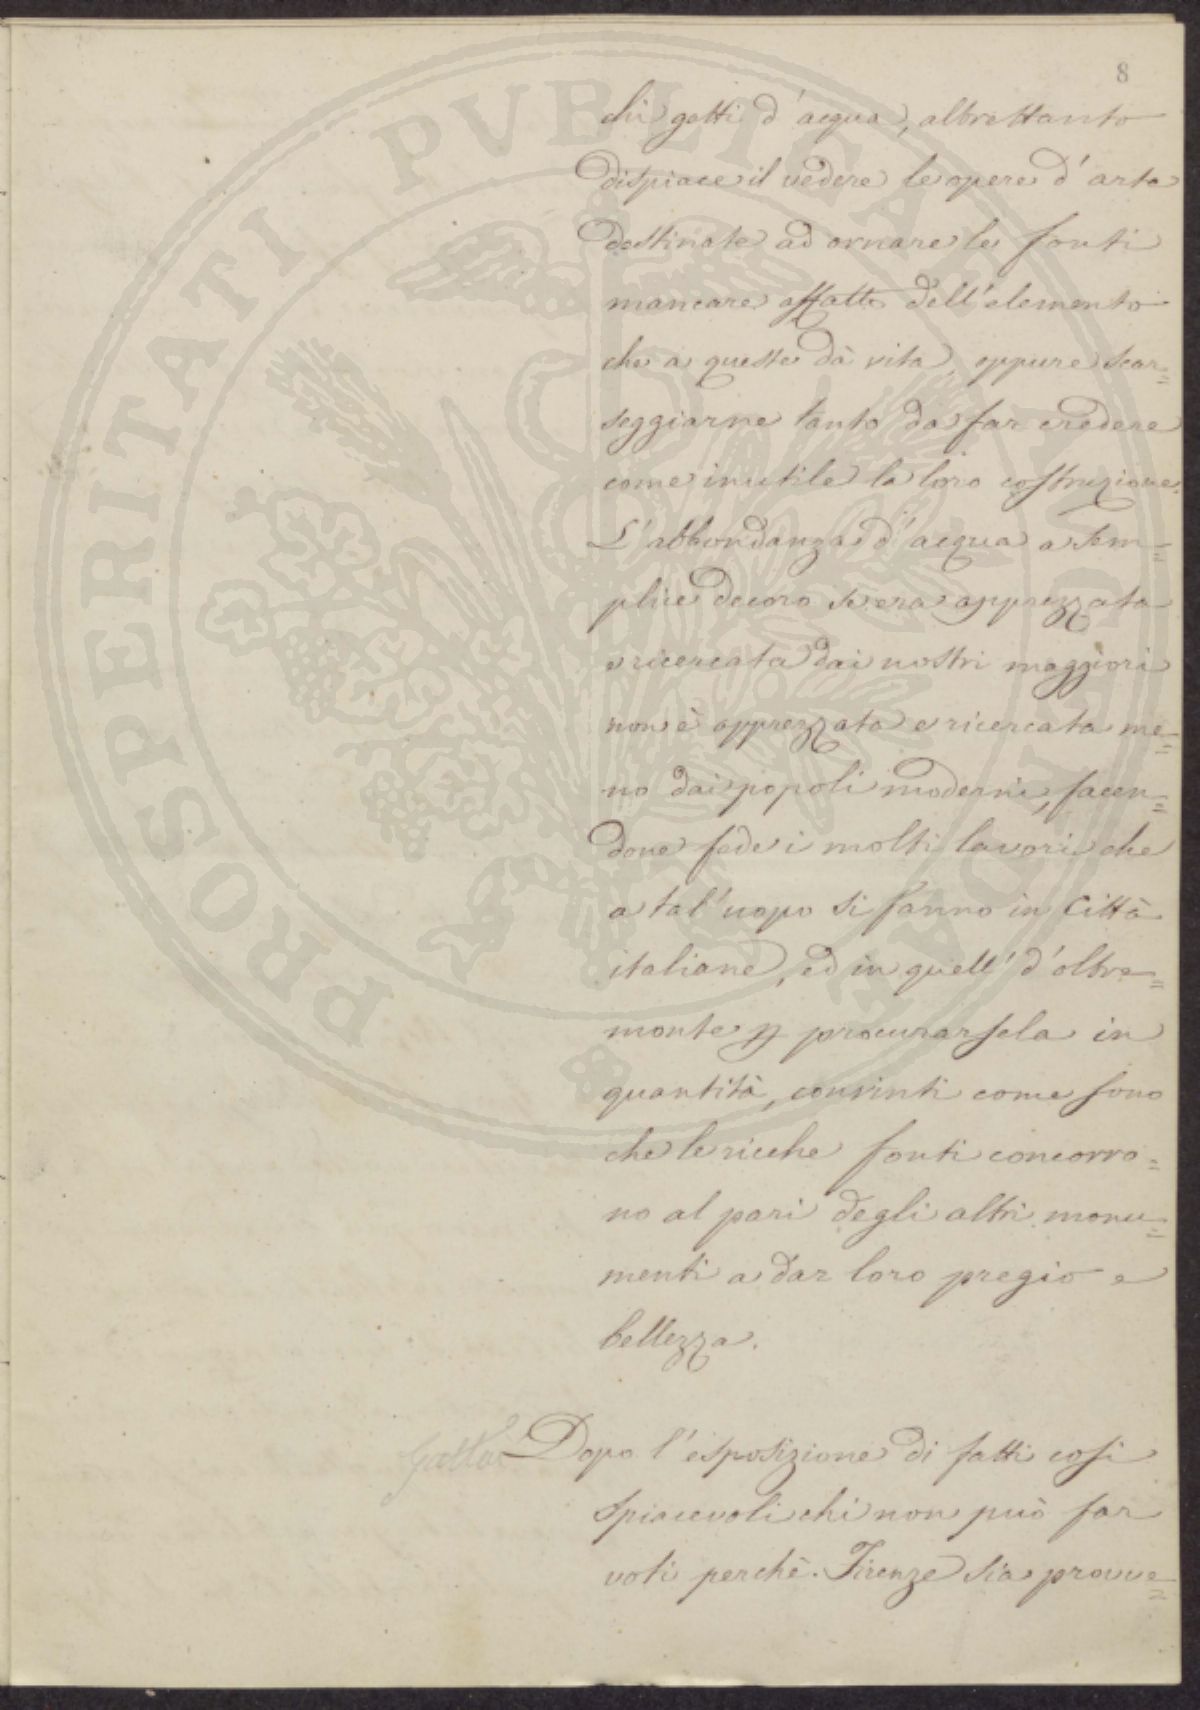 8
chi getti d'acqua, altrettanto
dispiace il vedere le opere d'arte
destinate ad ornare le fonti
mancare affatto dell'elemento
che a queste dà vita, oppure scar=
seggiarne tanto da far credere
come inutile la loro costruzione.
L'abbondanza d'acqua a sem=
plice decoro se era apprezzata
e ricercata dai nostri maggiori
non è apprezzata e ricercata me=
no dai popoli moderni, facen=
done fede i molti lavori che
a tal'uopo si fanno in Città
italiane, ed in quell' d'oltre=
monte p procurarsela in
quantità, convinti come sono
che le ricche fonti concorro=
no al pari degli altri monu=
menti a dar loro pregio e
bellezza.
Dopo l'esposizione di fatti così
spiacevoli chi non può far
voti perchè Firenze sia provve=
PROSPERITATI PVBLICAE AVGENDAE